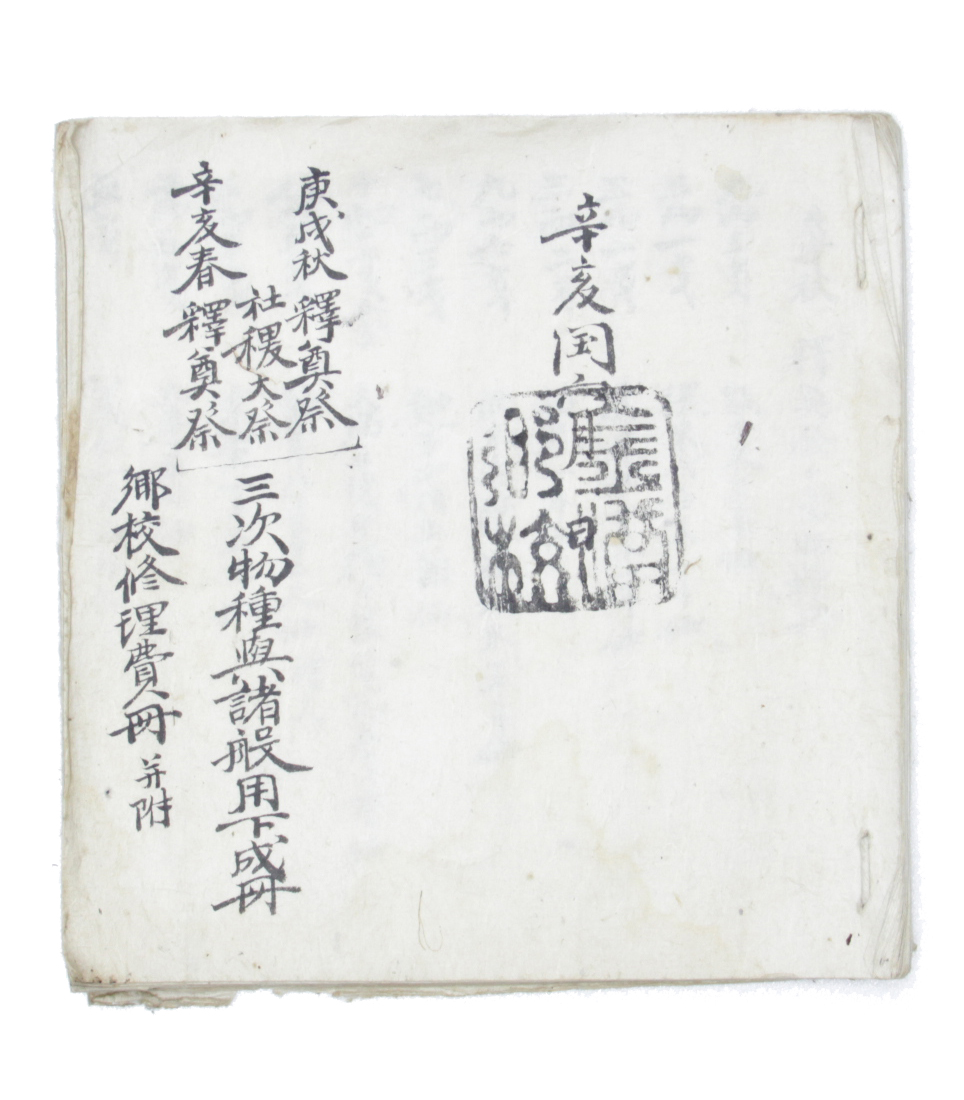 辛亥閏六月 日
庚戌秋釋奠祭
社稷大祭
辛亥春釋奠祭
三次物種與諸般用下成冊
鄉校修理費冊 并附